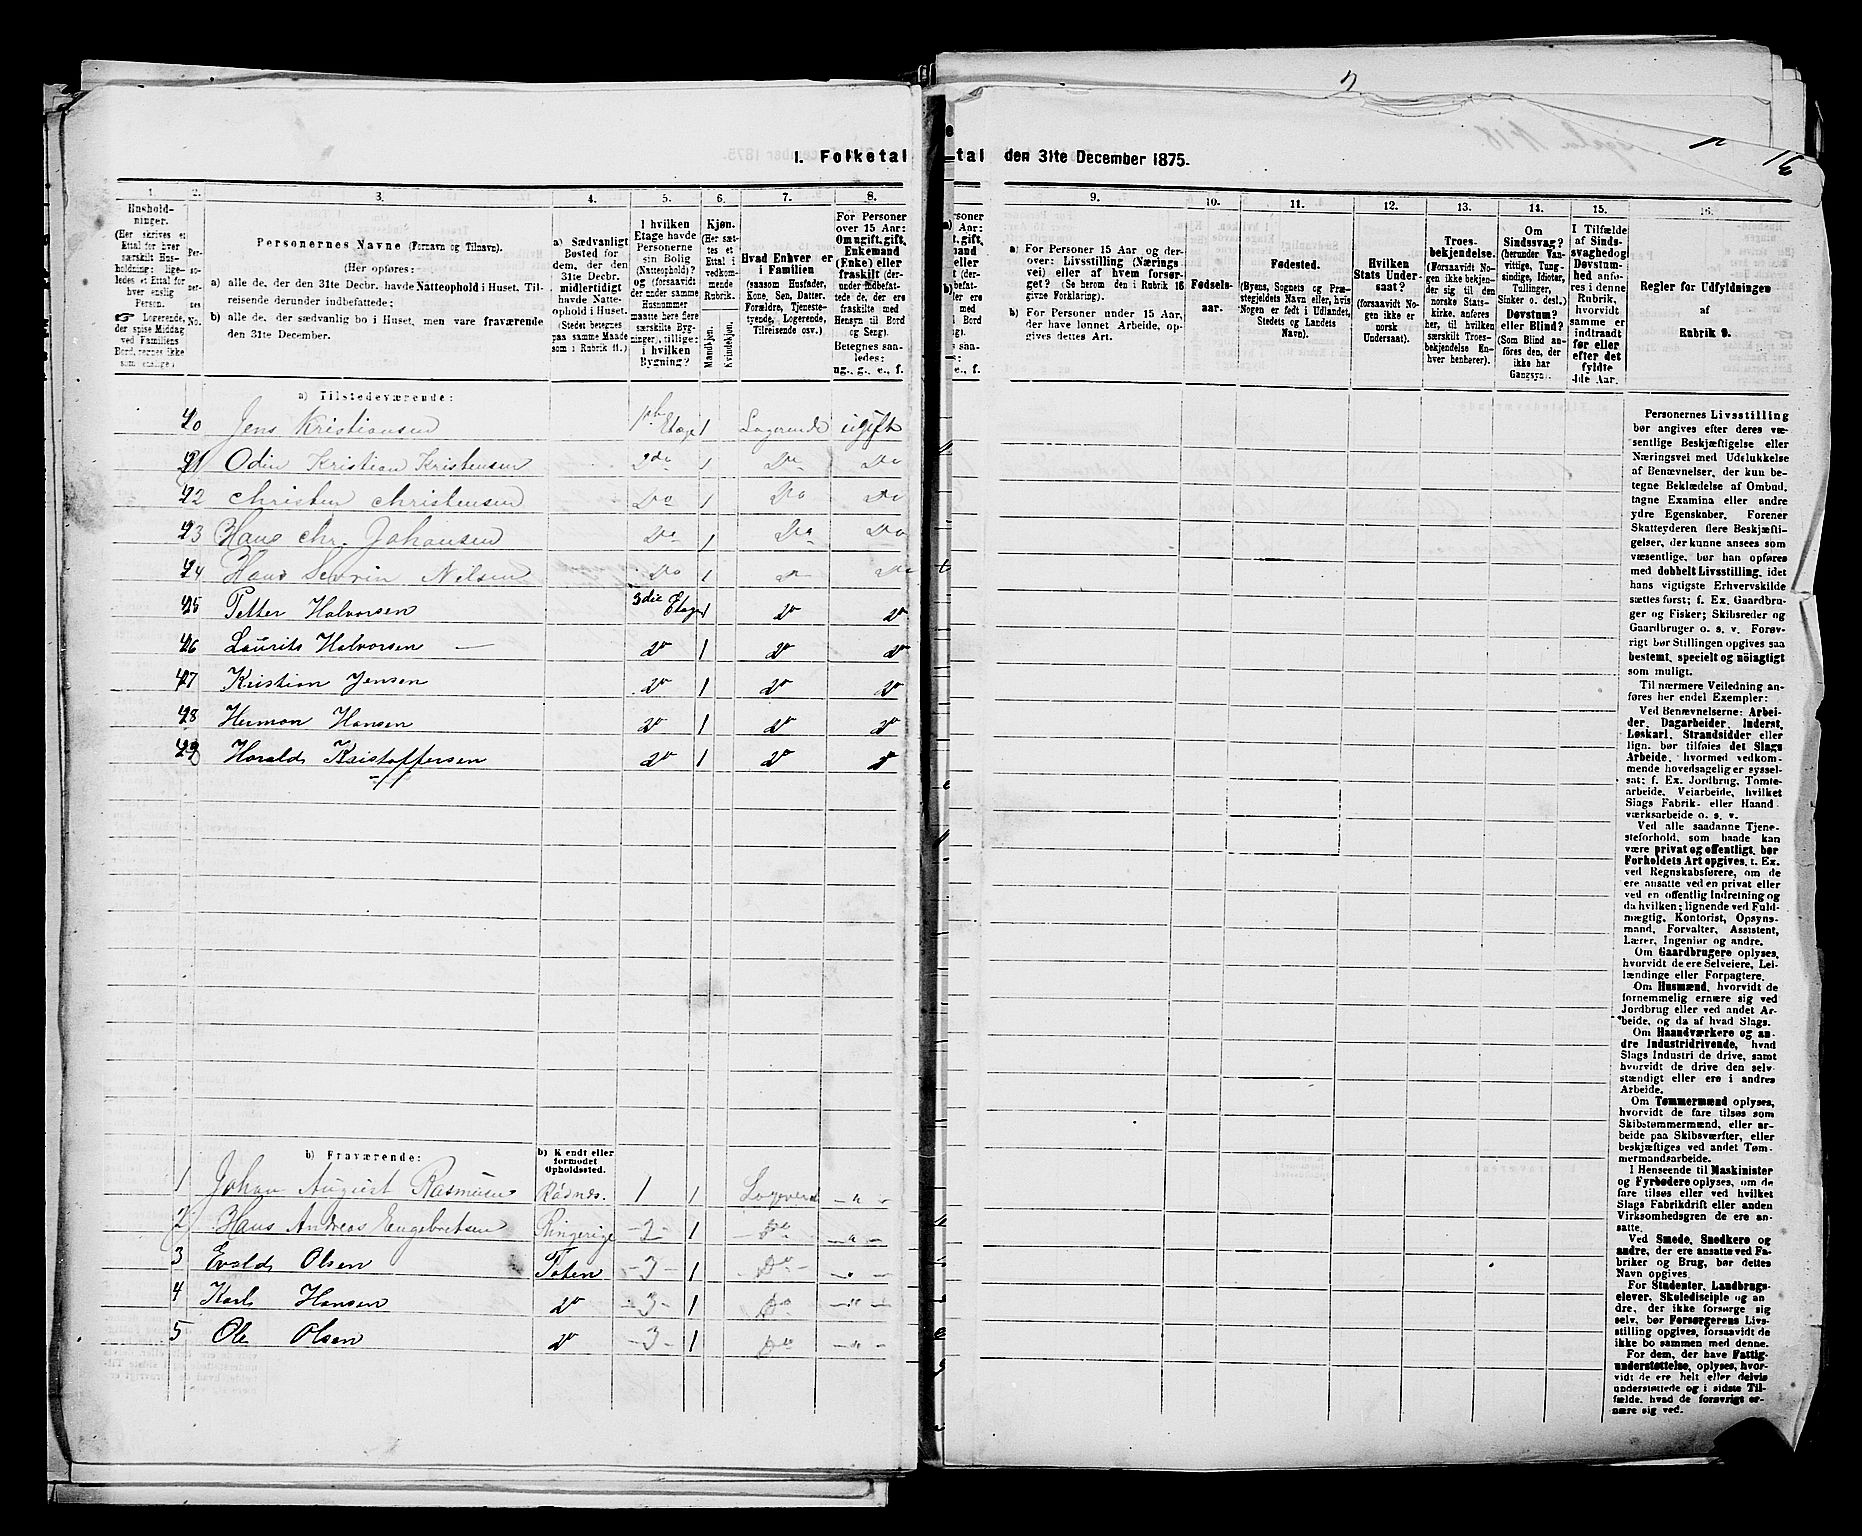 1. Folketal
1. 2. 3. 4. 5. 6. 7. 8.
Husholdninger. (Her skrives et Ettal for hver særskilt Husholdning; ligeledes et Ettal for hver enslig Person.
☞ Logerende, der spise Middag ved Familiens Bord, regnes ikke som enslige.)
Personernes No.
Personernes Navne (Fornavn og Tilnavn).
(Her opføres:
a) alle de, der den 31te Decbr. havde Natteophold i Huset, Tilreisende derunder indbefattede;
b) alle de, der sædvanlig bo i Huset, men vare fraværende den 31te December.
a) Sædvanligt Bosted for dem, der den 31te Decbr. midlertidigt havde Natteophold i Huset. (Stedet betegnes paa samme Maade som i Rubrik 11.)
I hvilken Etage havde Personerne sin Bolig (Natteophold)? og (forsaavidt der under samme Husnummer maatte høre flere særskilte Bygninger), tillige: i hvilken Bygning?
Kjøn. (Her sættes et Ettal i vedkommende Rubrik.
Mandkjøn. Kvindekjøn.
Hvad Enhver er i Familien (saasom Husfader, Kone, Søn, Datter, Forældre, Tjenestetyende, Logerende, Tilreisende osv.)
For Personer over 15 Aar: Om ugift, gift, Enkemand (Enke) eller fraskilt (derunder indbefattede de, der ere fraskilte med Hensyn til Bord og Seng). Betegnes saaledes: ug., g., e., f.
a) Tilstedeværende:
20 Jens Kristiansen Etage 1 Logerende ugift
21 Odin Kristian Kristensen 2do 1 Do Do
22 Christen Christensen Do 1 Do Do
23 Hans Chr. Johansen Do 1 Do Do
24 Hans Sevrin Nilsen Do 1 Do Do
25 Petter Halvorsen 3die Etage 1 Do Do
26 Laurits Halvorsen — Do 1 Do Do
27 Kristian Jensen Do 1 Do Do
28 Herman Hansen Do 1 Do Do
29 Harald Kristoffersen Do 1 Do Do
b) Fraværende:
b) Kjendt eller formodet Opholdssted.
1 Johan August Rasmusen Rødnes. 1 1 Logerend - " -
2 Hans Andreas Engebretsen Ringerige - 2 - 1 Do - " -
3 Evald Olsen Toten - 3 - 1 Do - - " -
4 Karl Hansen Do - 3 - 1 Do - " -
5 Ole Olsen Do - 3 - 1 Do - " -
tal den 31te December 1875.
16
9. 10. 11. 12. 13. 14. 15. 16.
a) For Personer 15 Aar og derover: Livsstilling (Næringsvei) eller af hvem forsørget? (Se herom den i Rubrik 16 givne Forklaring).
b) For Personer under 15 Aar, der have lønnet Arbeide, opgives dettes Art.
Fødselsaar.
Fødested. (Byens, Sognets og Præstegjeldets Navn eller, hvis Nogen er født i Udlandet, Stedets og Landets Navn).
Hvilken Stats Undersaat? (forsaavidt Nogen ikke er norsk Undersaat).
Troesbekjendelse. (Forsaavidt Nogen ikke bekjender sig til den norske Statskirke, anføres her, til hvilken særskilt Troesbekjendelse Enhver henhører).
Om Sindssvag? (herunder Vanvittige, Tungsindige, Idioter, Tullinger, Sinker o. desl.) Døvstum? eller Blind? (Som Blind anføres den, der ikke har Gangsyn).
I Tilfælde af Sindssvaghed og Døvstumhed anføres i denne Rubrik, hvorvidt samme er indtraadt før eller efter det fyldte 4de Aar.
Regler for Udfyldningen af Rubrik 9.
Personernes Livsstilling
bør angives efter deres væsentlige
Beskjæftigelse eller
Næringsvei med Udelukkelse
af Benævnelser, der kun betegne
Beklædelse af Ombud,
tagne Examina eller andre
ydre Egenskaber. Forener
Skatteyderen flere Beskjæftigelser,
der kunne ansees som
væsentlige, bør han opføres
med dobbelt Livsstilling, idet
hans vigtigste Erhvervskilde
sættes først; f. Ex. Gaardbruger
og Fisker; Skibsreder og
Gaardbruger o. s. v. Forøvrigt
bør Stillingen opgives saa
bestemt, specielt og nöiagtigt
som muligt.
Til nærmere Veiledning anføres
her endel Exempler:
Ved Benævnelserne: Arbeider,
Dagarbeider, Inderst,
Løskarl, Strandsidder eller
lign. bør tilføies det Slags
Arbeide, hvormed vedkommende
hovedsagelig er sysselsat;
f. Ex. Jordbrug, Tomtearbeide,
Veiarbeide, hvilket
Slags Fabrik- eller Haandværksarbeide
o. s. v.
Ved alle saadanne Tjenesteforhold,
som baade kan
være privat og offentligt, bør
Forholdets Art opgives, t. Ex.
ved Regnskabsførere, om de
ere ansatte ved en privat eller
ved en offentlig Indretning og
da hvilken; lignende ved Fuldmægtig,
Kontorist, Opsynsmand,
Forvalter, Assistent,
Lærer, Ingeniør og andre.
Om Gaardbrugere oplyses,
hvorvidt de ere Selveiere, Leilændinge
eller Forpagtere.
Om Husmænd, hvorvidt de
fornemmelig ernære sig ved
Jordbrug eller ved andet Arbeide,
og da af hvad Slags.
Om Haandværkere og andre
Industridrivende, hvad
Slags Industri de drive, samt
hvorvidt de drive den selvstændigt
eller ere i andres
Arbeide.
Om Tømmermænd oplyses,
hvorvidt de fare tilsøs som
Skibstømmermænd, eller arbeide
paa Skibsværfter, eller
beskjæftiges ved andet Tømmermandsarbeide.
I Henseende til Maskinister
og Fyrbødere oplyses, om de
fare tilsøs eller ved hvilket
Slags Fabrikdrift eller anden
Virksomhedsgren de ere ansatte.
Ved Smede, Snedkere og
andre, der ere ansatte ved Fabriker
og Brug, bør dettes
Navn opgives.
For Studenter, Landbrugselever,
Skoledisciple og andre,
der ikke forsørge sig
selv, bør Forsørgerens Livsstilling
opgives, forsaavidt de
ikke bo sammen med denne.
For dem, der have Fattigunderstøttelse,
oplyses, hvorvidt
de ere helt eller delvis
understøttede og i sidste Tilfælde,
hvad de forøvrigt ernære
sig ved.